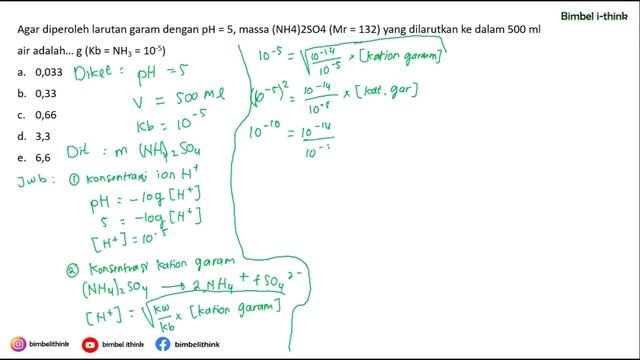 Bimbel i-think
Agar diperoleh larutan garam dengan pH = 5, massa (NH4)2SO4 (Mr = 132) yang dilarutkan ke dalam 500 ml
air adalah... g (Kb = NH₃ = 10⁻⁵)
a. 0,033
b. 0,33
c. 0,66
d. 3,3
e. 6,6
Diket : pH = 5
V = 500 ml
Kb = 10⁻⁵
Dit : m (NH₄)₂SO₄
Jwb : ① Konsentrasi ion H⁺
pH = -log [H⁺]
5 = -log [H⁺]
[H⁺] = 10⁻⁵
② Konsentrasi kation garam
(NH₄)₂SO₄ → 2NH₄⁺ + SO₄²⁻
[H⁺] = √(Kw/Kb × [kation garam])
10⁻⁵ = √(10⁻¹⁴/10⁻⁵ × [kation garam])
(10⁻⁵)² = 10⁻¹⁴/10⁻⁵ × [kat. gar]
10⁻¹⁰ = 10⁻¹⁴/10⁻
bimbelithink
bimbel ithink
bimbelithink